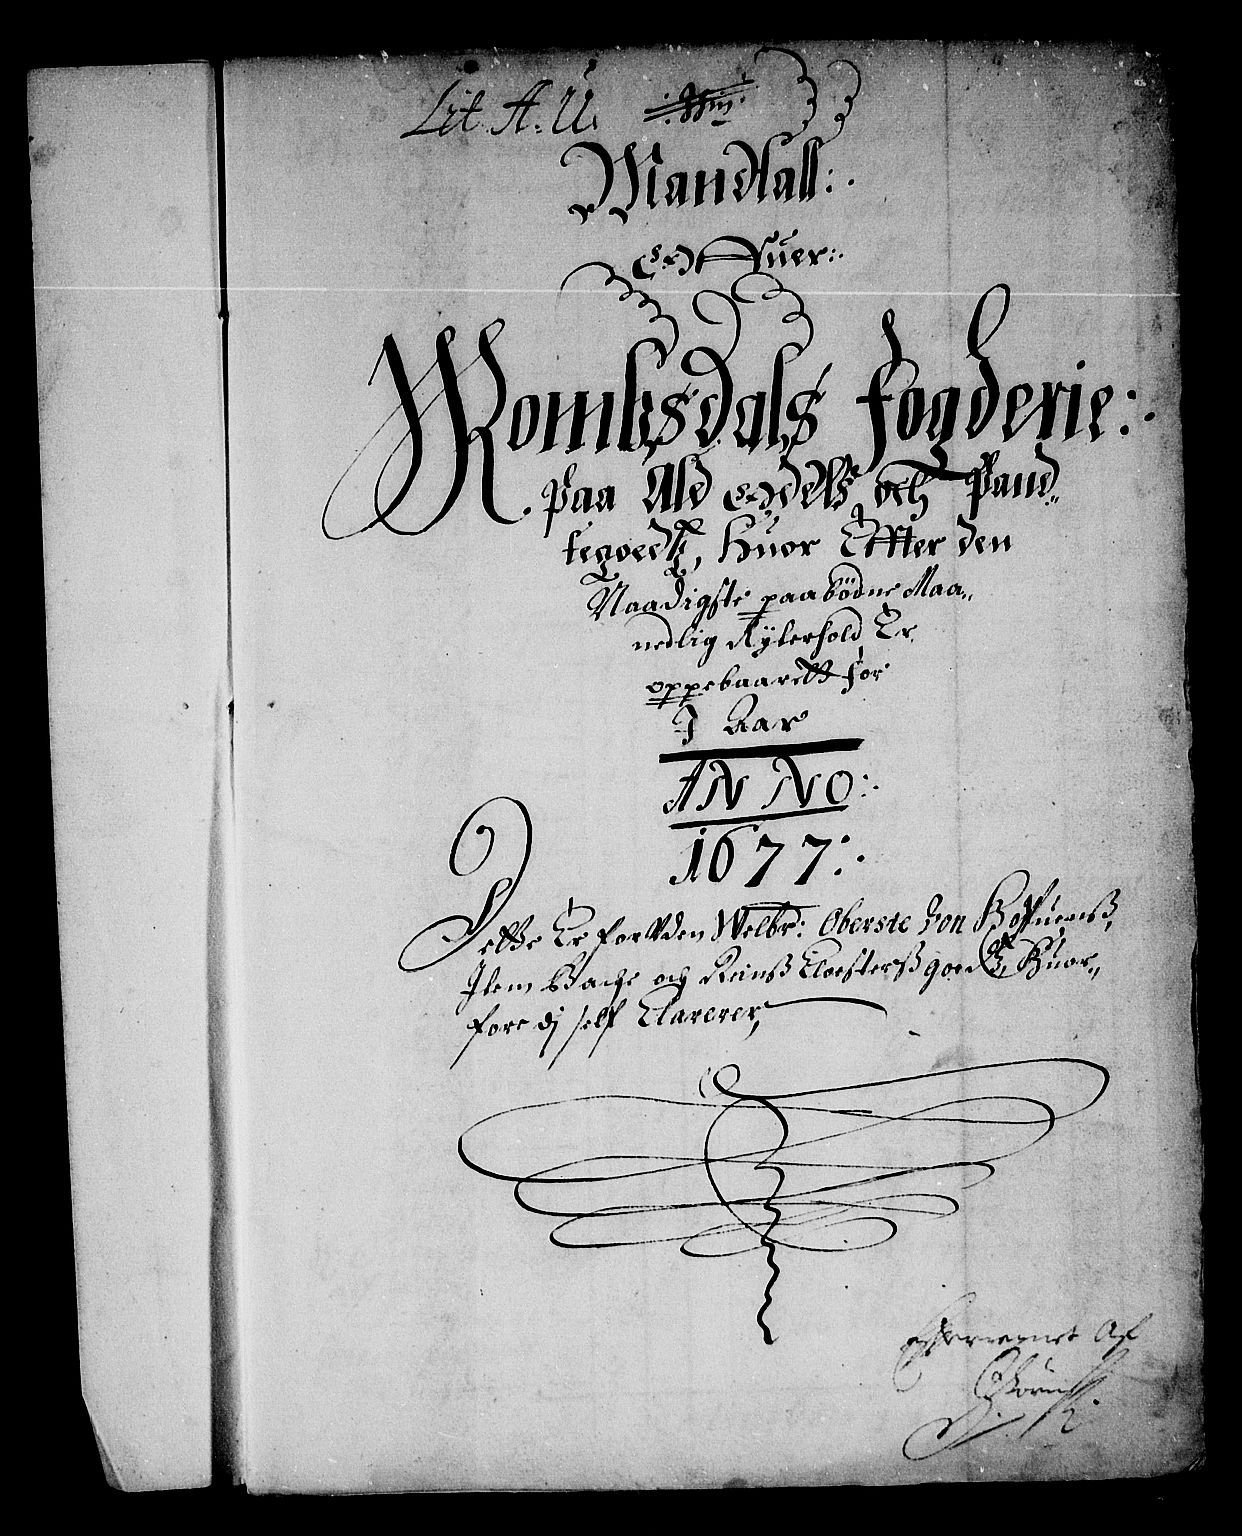 Lit A: Ü:
Mandtall:
Offuer:
Romsdals fogderie:
Paa Ald Odels och Pand
tegoedtz, Huor Effter den
Naadigste paabødne Maa„
nedlig Rÿterhold Er
oppebaarett for
J Aar
ANNO:
1677:
Dette Er foruden Welbr: Oberste von Hoffuenß,
Jtem Bache och Reinß Closterß goedtz, Huor„
fore dj self Clarerer,
Af